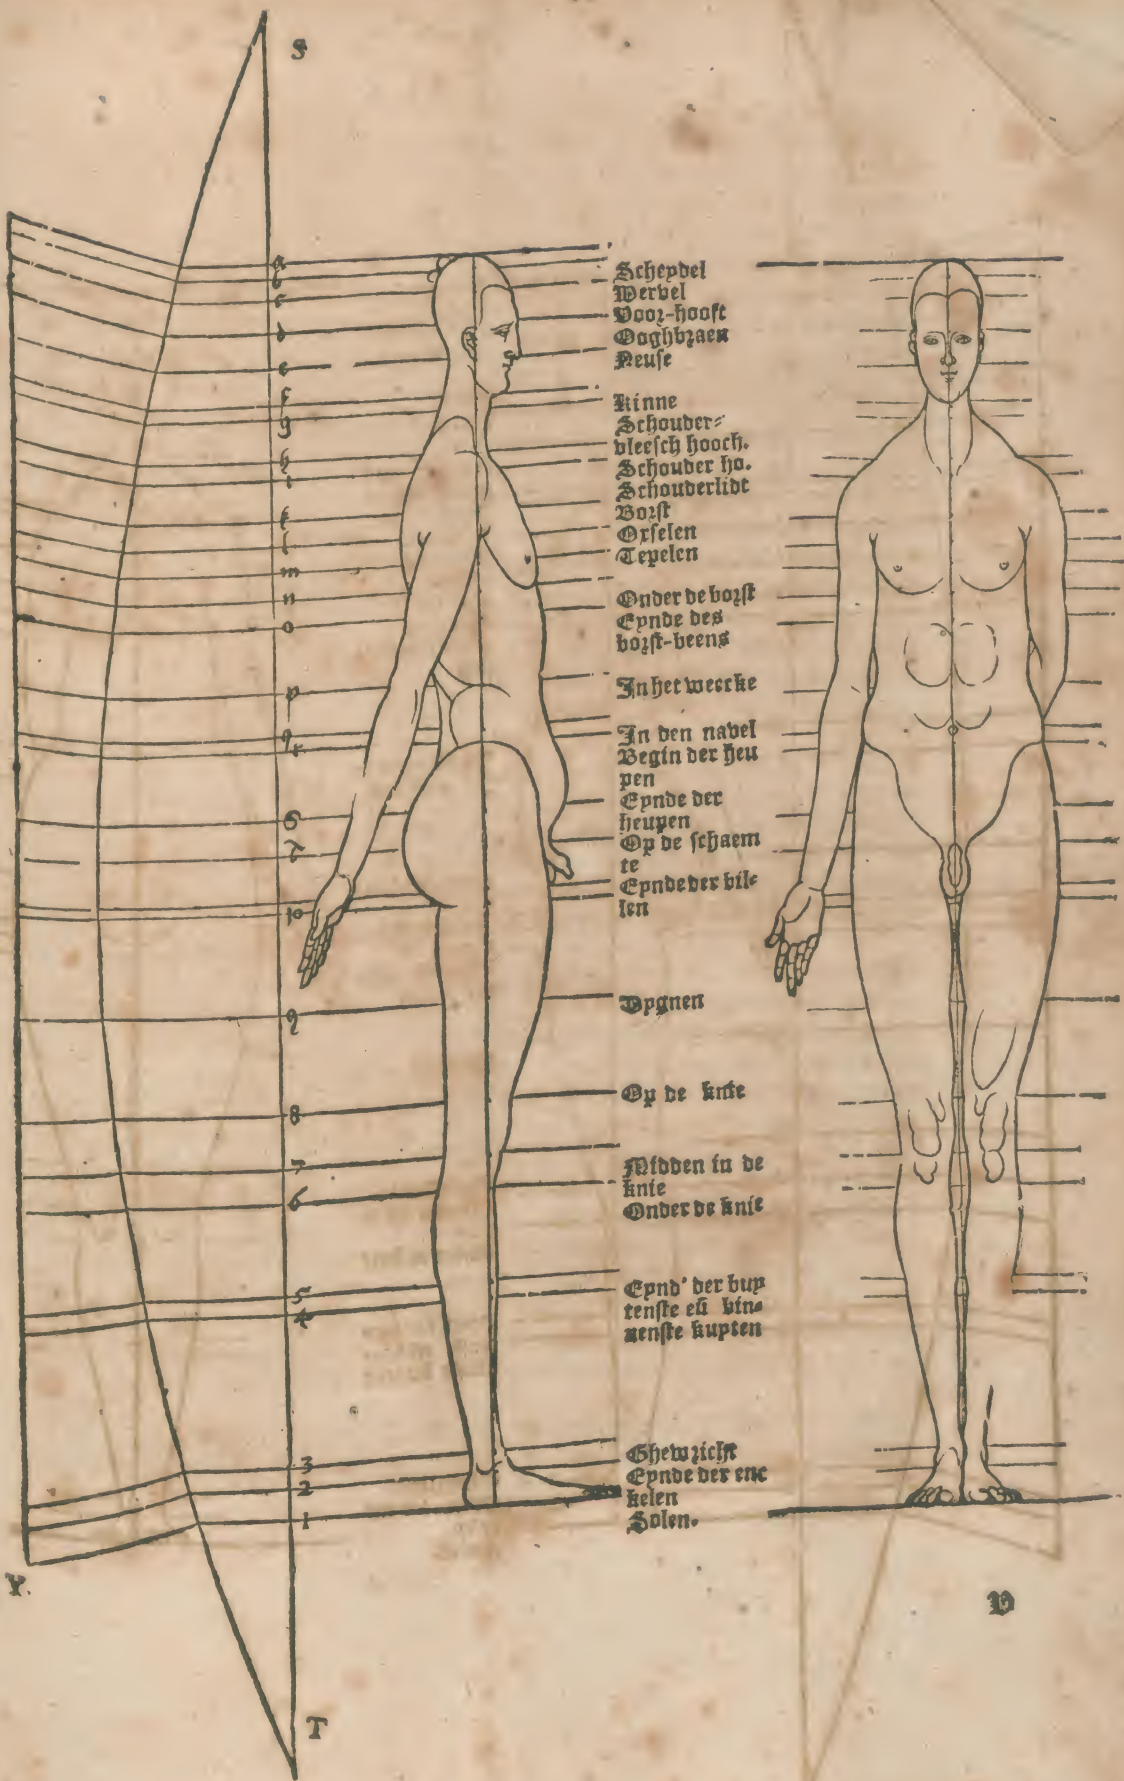 S
a
b
c
d
e
f
g
h
i
k
l
m
n
o
p
q
r
s
t
10
9
8
7
6
5
4
3
2
1
Y.
T
Scheydel
Wervel
Voor-hooft
Ooghbraen
Neuse
Kinne
Schouder-
vleesch hooch.
Schouder ho.
Schouderlidt
Borst
Oxselen
Tepelen
Onder de borst
Eynde des
borst-beens
In het weecke
In den navel
Begin der heu
pen
Eynde der
heupen
Op de schaem
te
Eynde der bil-
len
Op de knie
Midden in de
knie
Onder de knie
Eynd' der buy
tenste eñ bin-
nenste kuyten
Ghewricht
Eynde der enc
kelen
Solen.